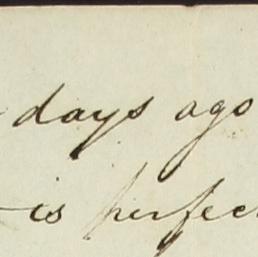 days ago
is perfec